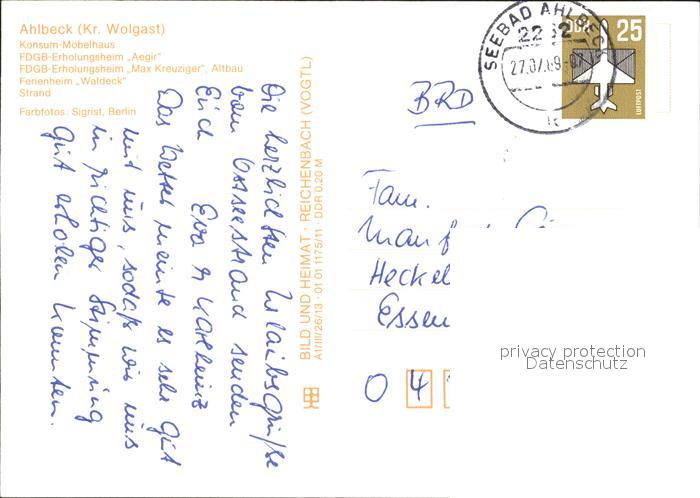 Ahlbeck (Kr. Wolgast)
Konsum-Möbelhaus
FDGB-Erholungsheim „Aegir“
FDGB-Erholungsheim „Max Kreuziger“, Altbau
Ferienheim „Waldeck“
Strand
Farbfotos: Sigrist, Berlin
Die herzlichsten Urlaubsgrüße
vom Ostseestrand senden
Euch Eva & Karlheinz
Das Wetter meinte es sehr gut
mit uns, sodaß wir uns
in richtiger Stimmung
gut erholen konnten.
BILD UND HEIMAT · REICHENBACH (VOGTL)
A1/III/26/13 · 01 01 1175/11 · DDR 0,20 M
SEEBAD AHLBECK
2252
27.07.89-07
DDR 25
LUFTPOST
BRD
Fam.
Manf
Heckel
Essen
O 4
privacy protection
Datenschutz